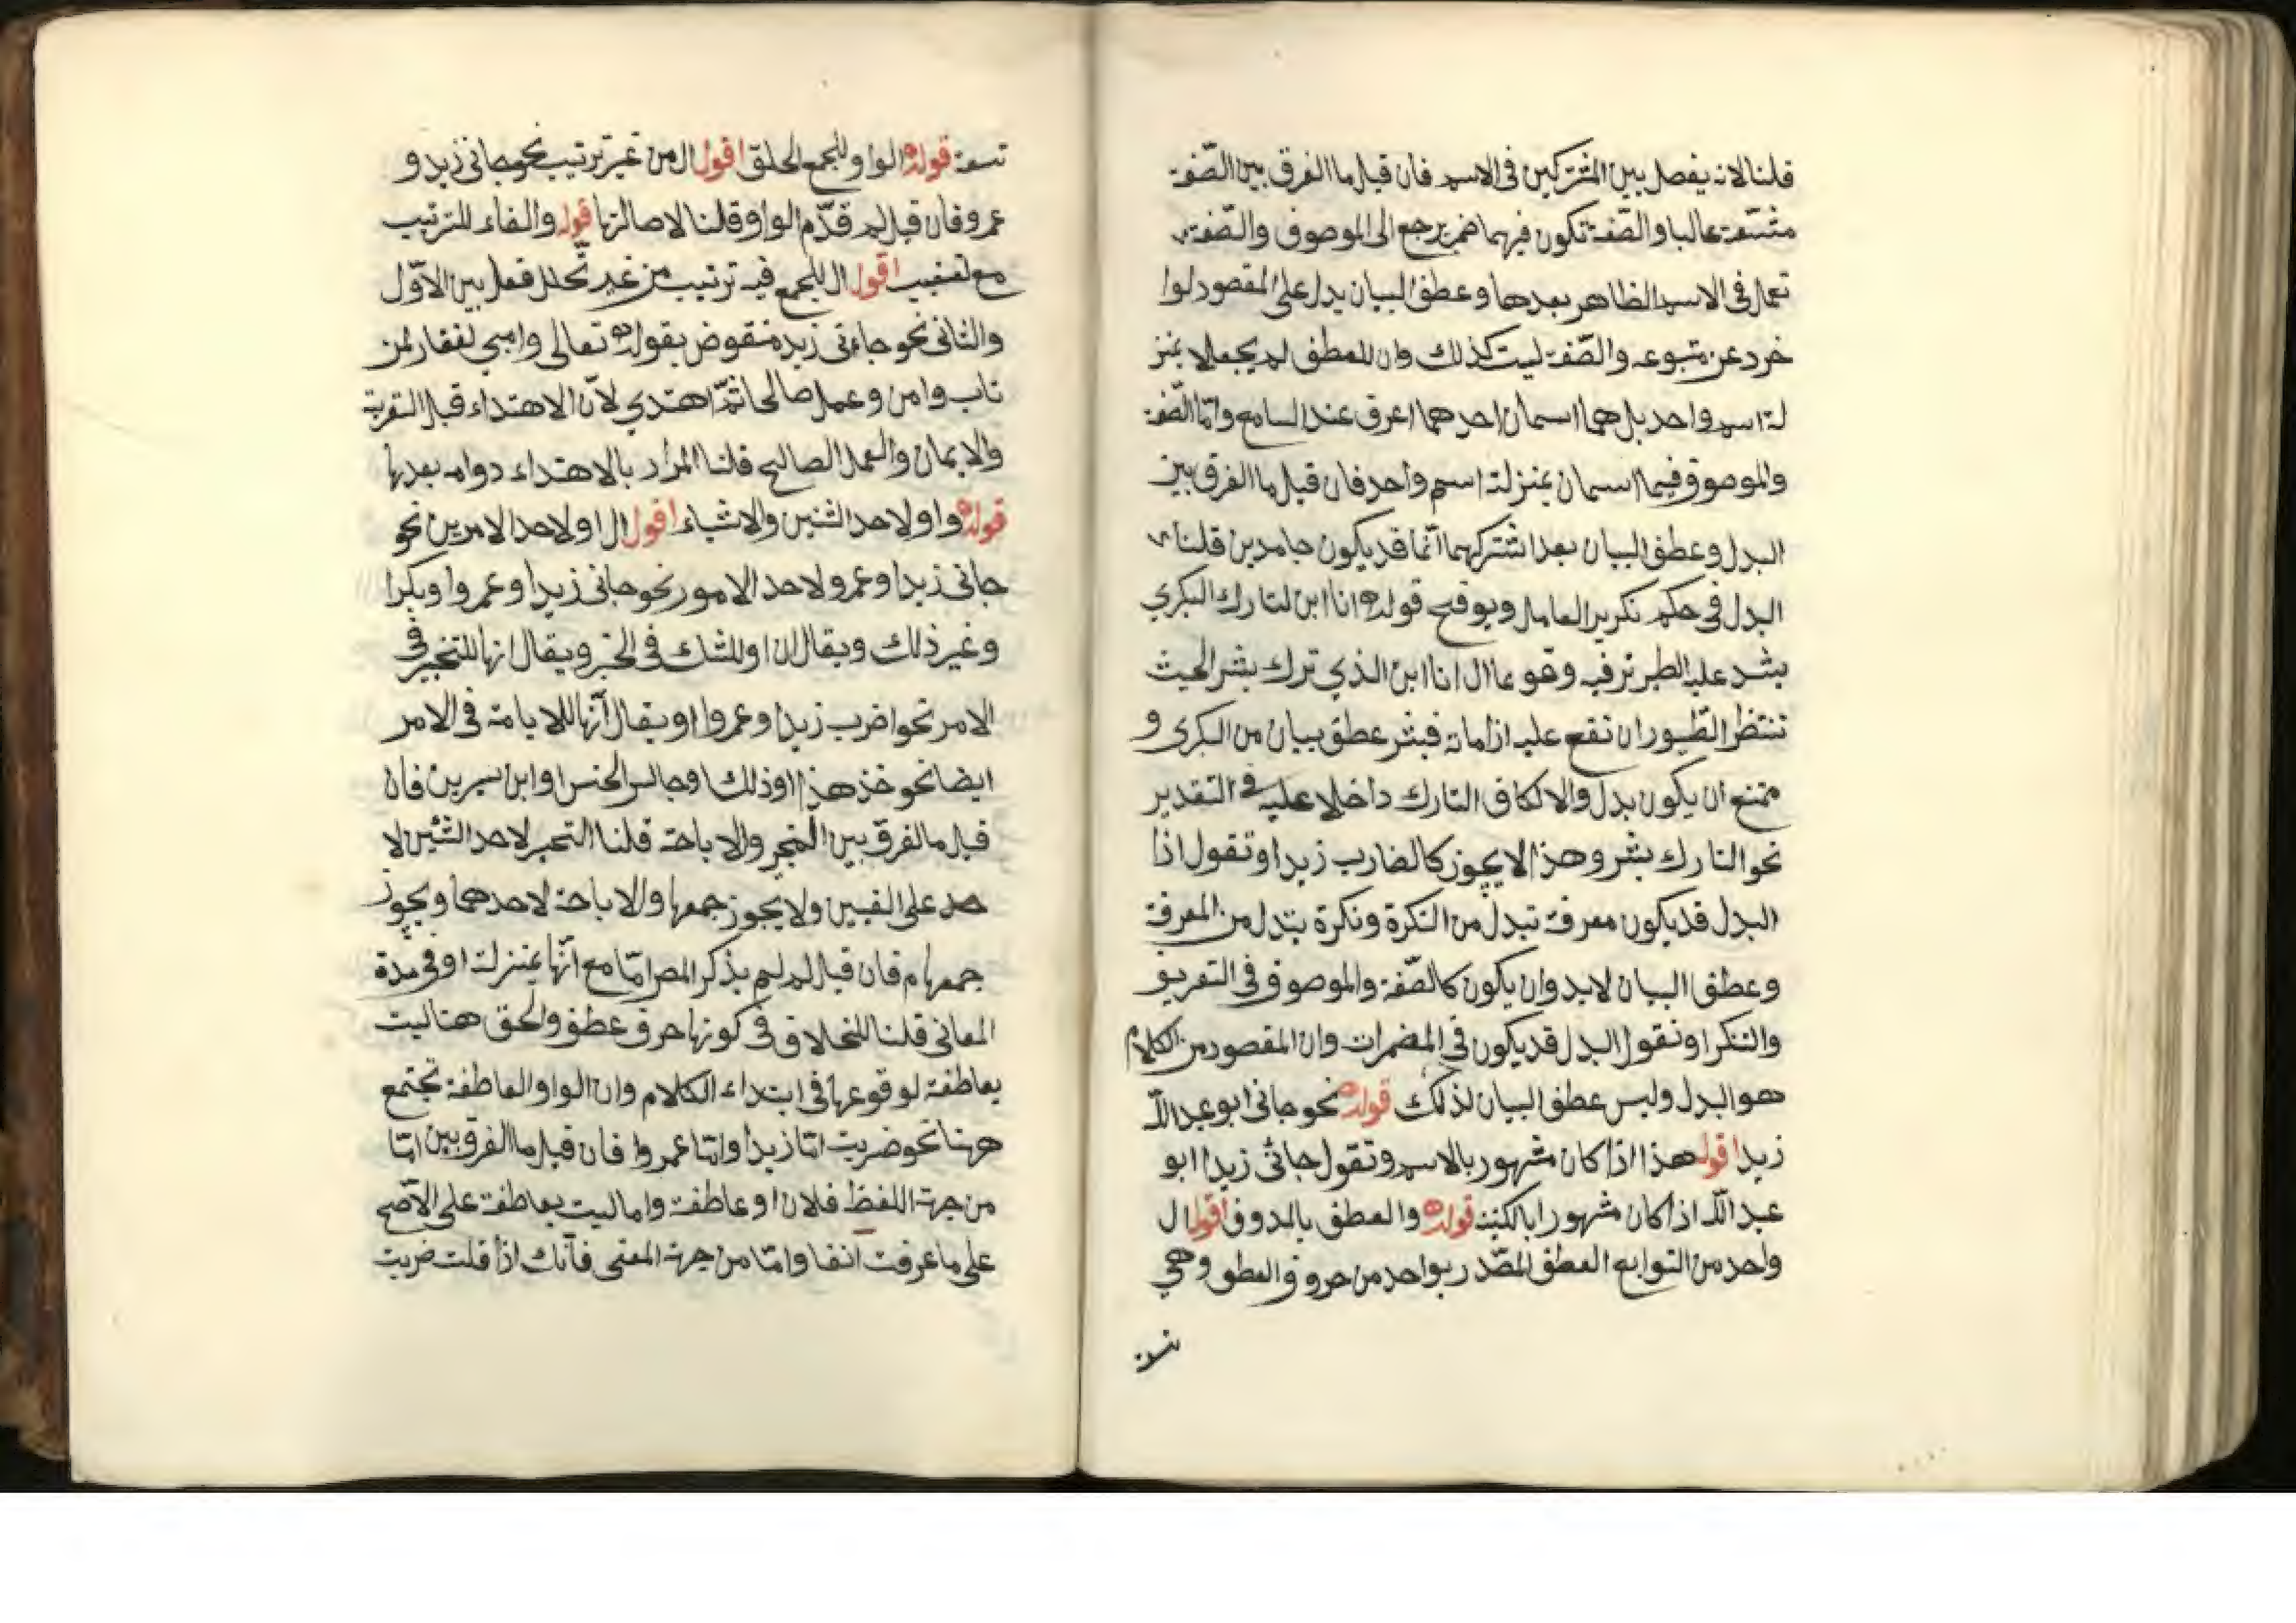 قلنا لانه يفصل بين المشتركين فى الاسم فان قيل ما الفرق بين الصّفة
مشتقة غالبا والصّفة تكون فيهما ضمير يرجع الى الموصوف والصّفة
تعمل فى الاسم الظاهر بعدها وعطف البيان يدل على المقصود لوا
خرد عن متبوعه والصّفة ليت كذلك وان للعطف لم يجعلا بمنز
لة اسم واحد بل هما اسمان احدهما اعرف عند السامع وامّا الصّفة
والموصوف فيما اسمان بمنزلة اسم واحد فان قيل ما الفرق بين
البدل وعطف البيان بعد اشتركهما انّما قد يكون جامدين قلنا
البدل فى حكم تكرير العامل ويوفح قوله انا ابن لتارك البكري
بشد عليه الطير نرفيه وقوعا ال انا ابن الذي ترك بشر الحيث
تنتظر الطّيور ان تقع عليه اذا مات فبشر عطف بيان من البكرى و
ممتنع ان يكون بدل والا لكاف التارك داخلا عليه فى التقدير
نحو التارك بشر وهذا لا يجوز كالضارب زيد او تقول اذا
البدل قد يكون معرفة تبدل من النكرة ونكرة بتدل من المعرفة
وعطف البيان لابد وان يكون كالصّفة والموصوف فى التعريف
والتنكر او نقول البدل قد يكون فى المضمرات وان المقصود من الكلام
هو البدل وليس عطف البيان لذلك قوله نحو جانى ابو عبد اللّه
زيد اقول هذا اذا كان مشهور بالاسم وتقول جانى زيد ابو
عبد اللّه اذا كان مشهورا بالكنية قوله والعطف بالحروف اقول ال
واحد من التوابع العطف المصّدر بواحد من حروف العطف وهى
تسعة
تسعة قوله الواو للجمع المطلق اقول ال من غير ترتيب نحو جانى زيد و
عمرو فان قيل لم قدّم الواو قلنا لاصالتها قوله والفاء للترتيب
مع تعقيب اقول ال للجمع فيه ترتيب من غير تخلل فعل بين الاوّل
والثانى نحو جاءنى زيد منقوض بقوله تعالى وانى لغفار لمن
تاب وامن وعمل صالحا ثمّ اهتدي لانّ الاهتداء قبل التوبة
والايمان والعمل الصالح قلنا المراد بالاهتداء دوامه بعدها
قوله واو لاحد الشئين والاشياء اقول ال او لاحد الامرين نحو
جانى زيد او عمرو لاحد الامور نحو جانى زيد او عمرو او بكرا
وغير ذلك ويقال ان او للشك فى الخبر ويقال انها للتخير فى
الامر نحو اضرب زيدا وعمروا او يقال انّها للاباحة فى الامر
ايضا نحو خذ هذا او ذلك وجالس الحنس او ابن سيرين فان
قيل ما الفرق بين التخير والاباحة قلنا التخير لاحد الشئين لا
حد على القبين ولا يجوز جمعها والاباحة لاحدهما ويجوز
جمعهام فان قيل لم لم يذكر المص امّا مع انّها بمنزلة او فى مدة
المعانى قلنا للخلاف فى كونها حرف عطف والحق هنا ليت
بعاطفة لوقوعها فى ابتداء الكلام وان الواو العاطفة تجتمع
هنا نحو ضربت امّا زيدا وامّا عمروا فان قيل ما الفرق بين امّا
من جهة اللفظ فلان او عاطفة واما ليت بعاطفة على الاصّح
على ما عرفت انفا وامّا من جهة المعنى فانّك اذا قلت ضربت